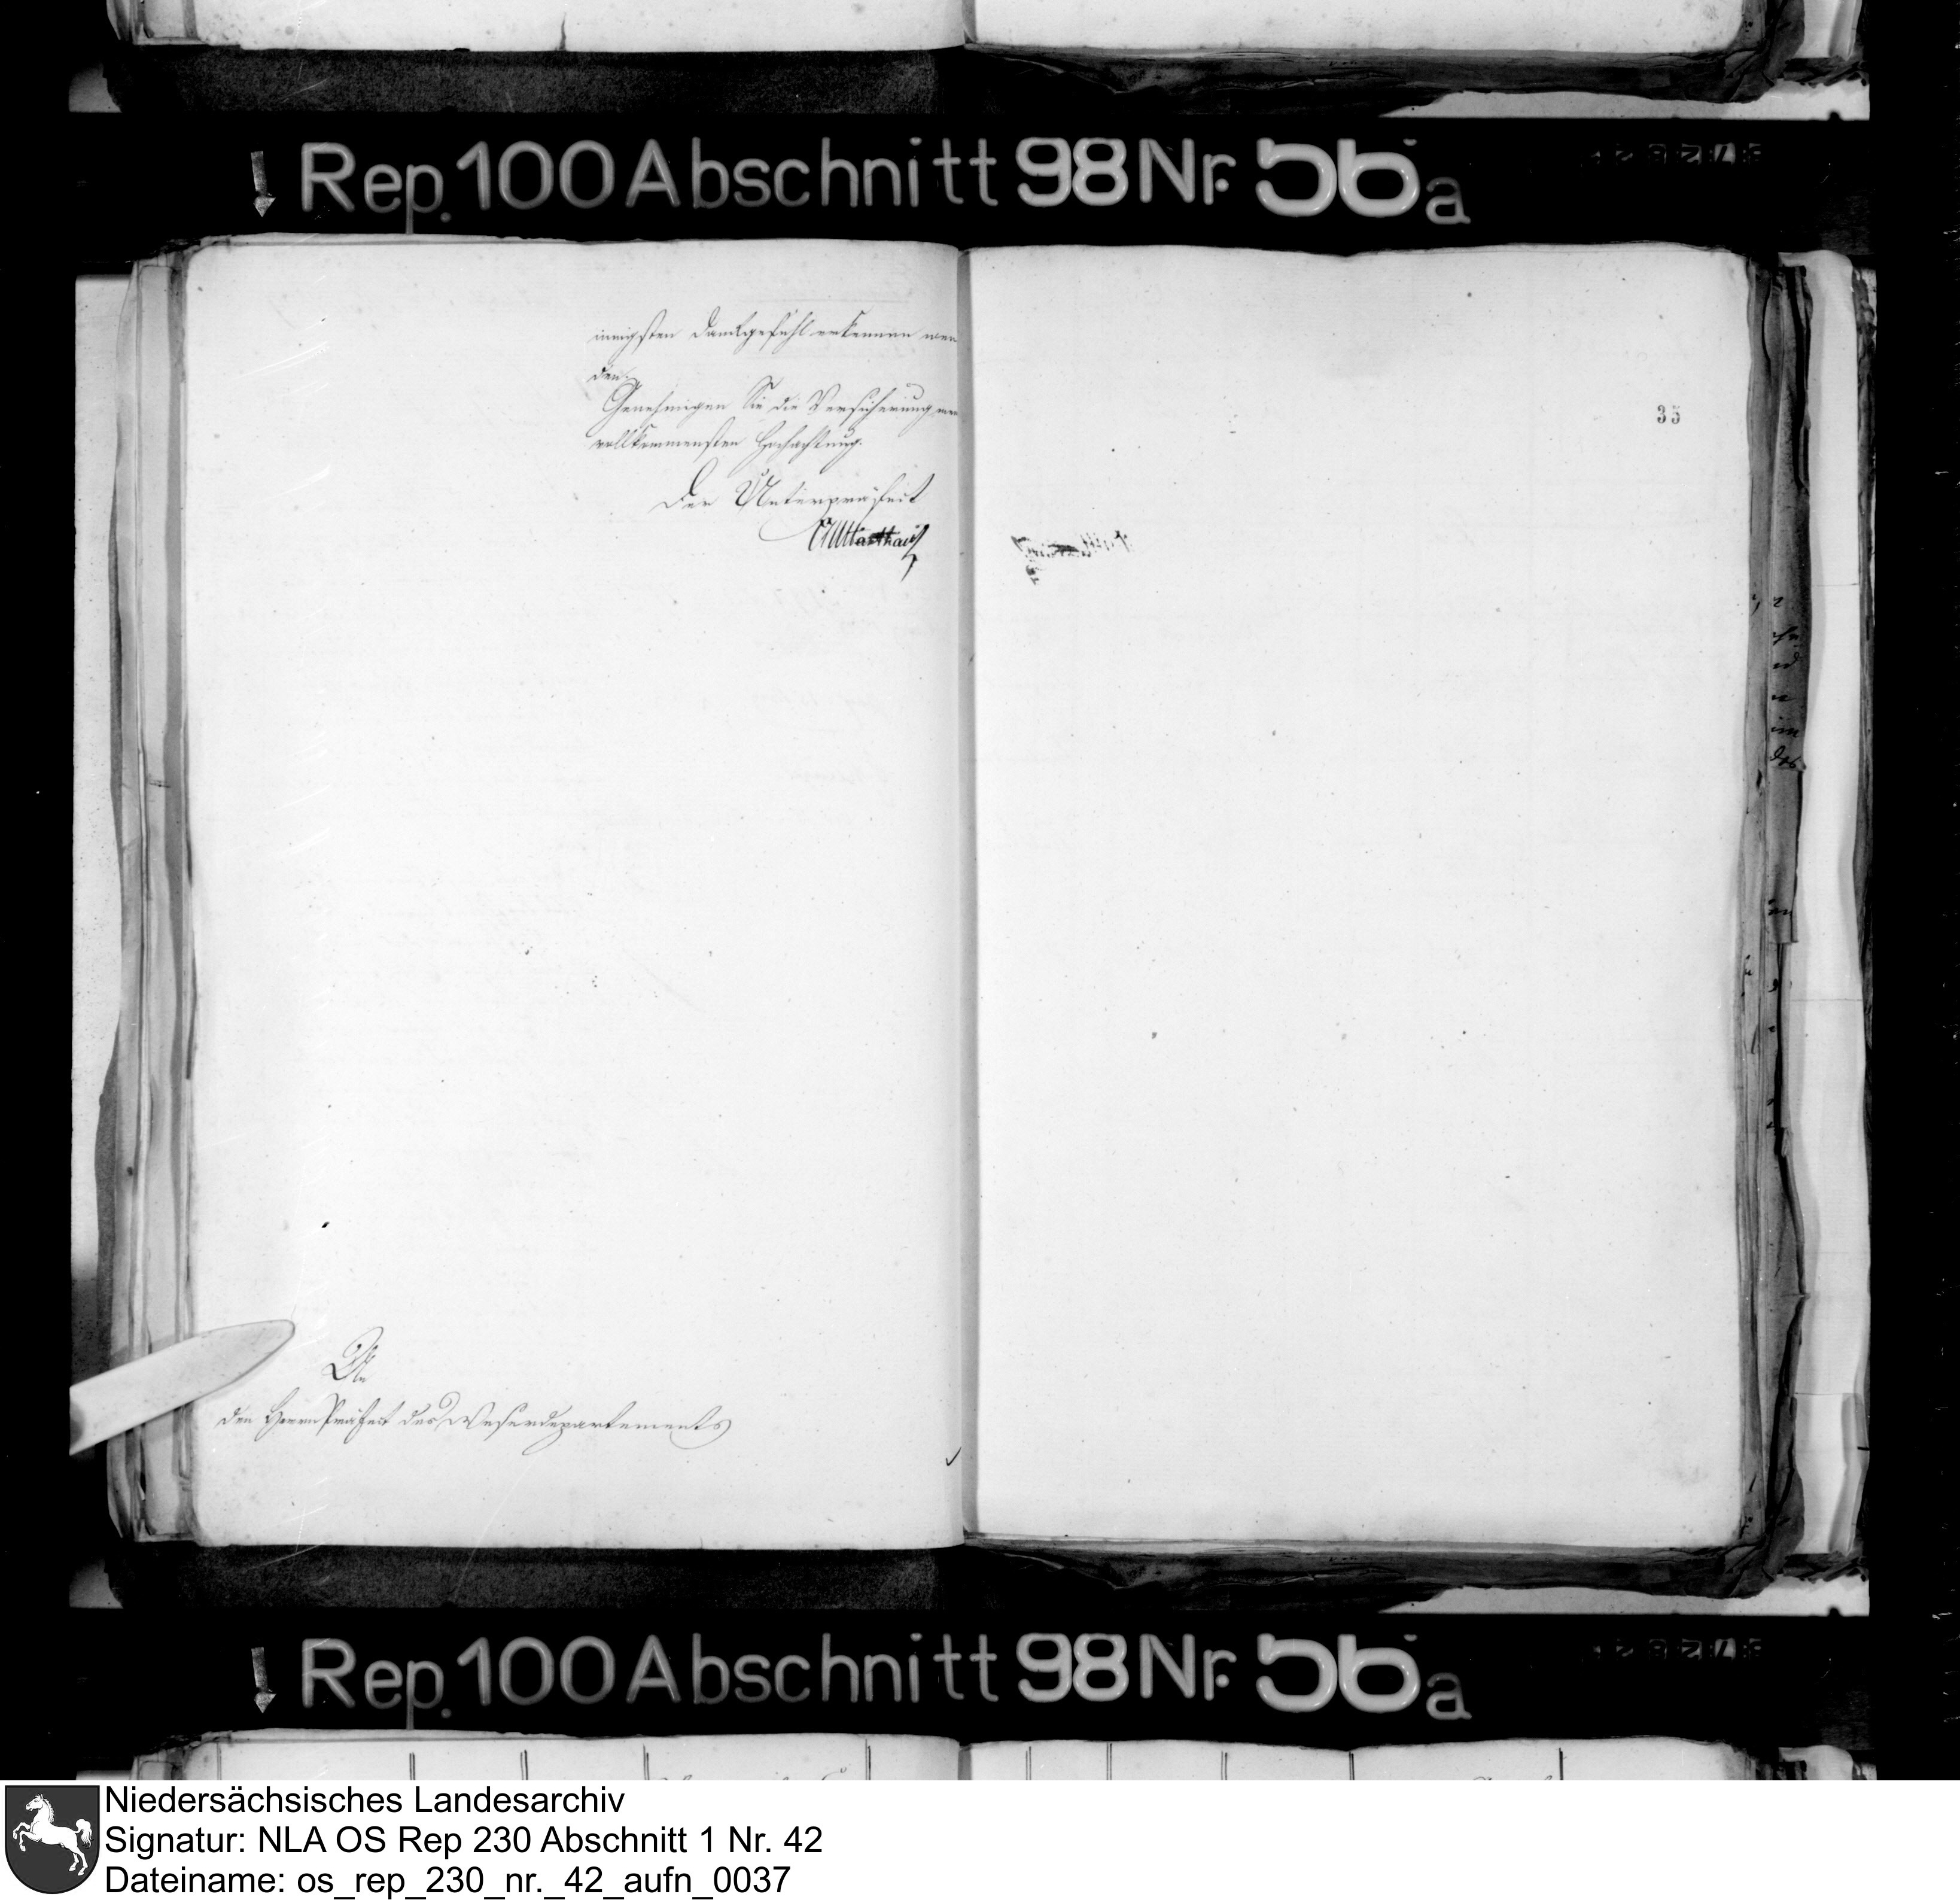 Rep. 100 Abschnitt 98 Nr. 56a
innigsten Dankgefühl erkennen wer
den.
Genehmigen Sie die Versicherung
vollkommensten Hochachtung.
Der Unterpräfect
35
An
den Herrn Präfect des Weserdepartements
Rep. 100 Abschnitt 98 Nr. 56a
Niedersächsisches Landesarchiv
Signatur: NLA OS Rep 230 Abschnitt 1 Nr. 42
Dateiname: os_rep_230_nr._42_aufn_0037